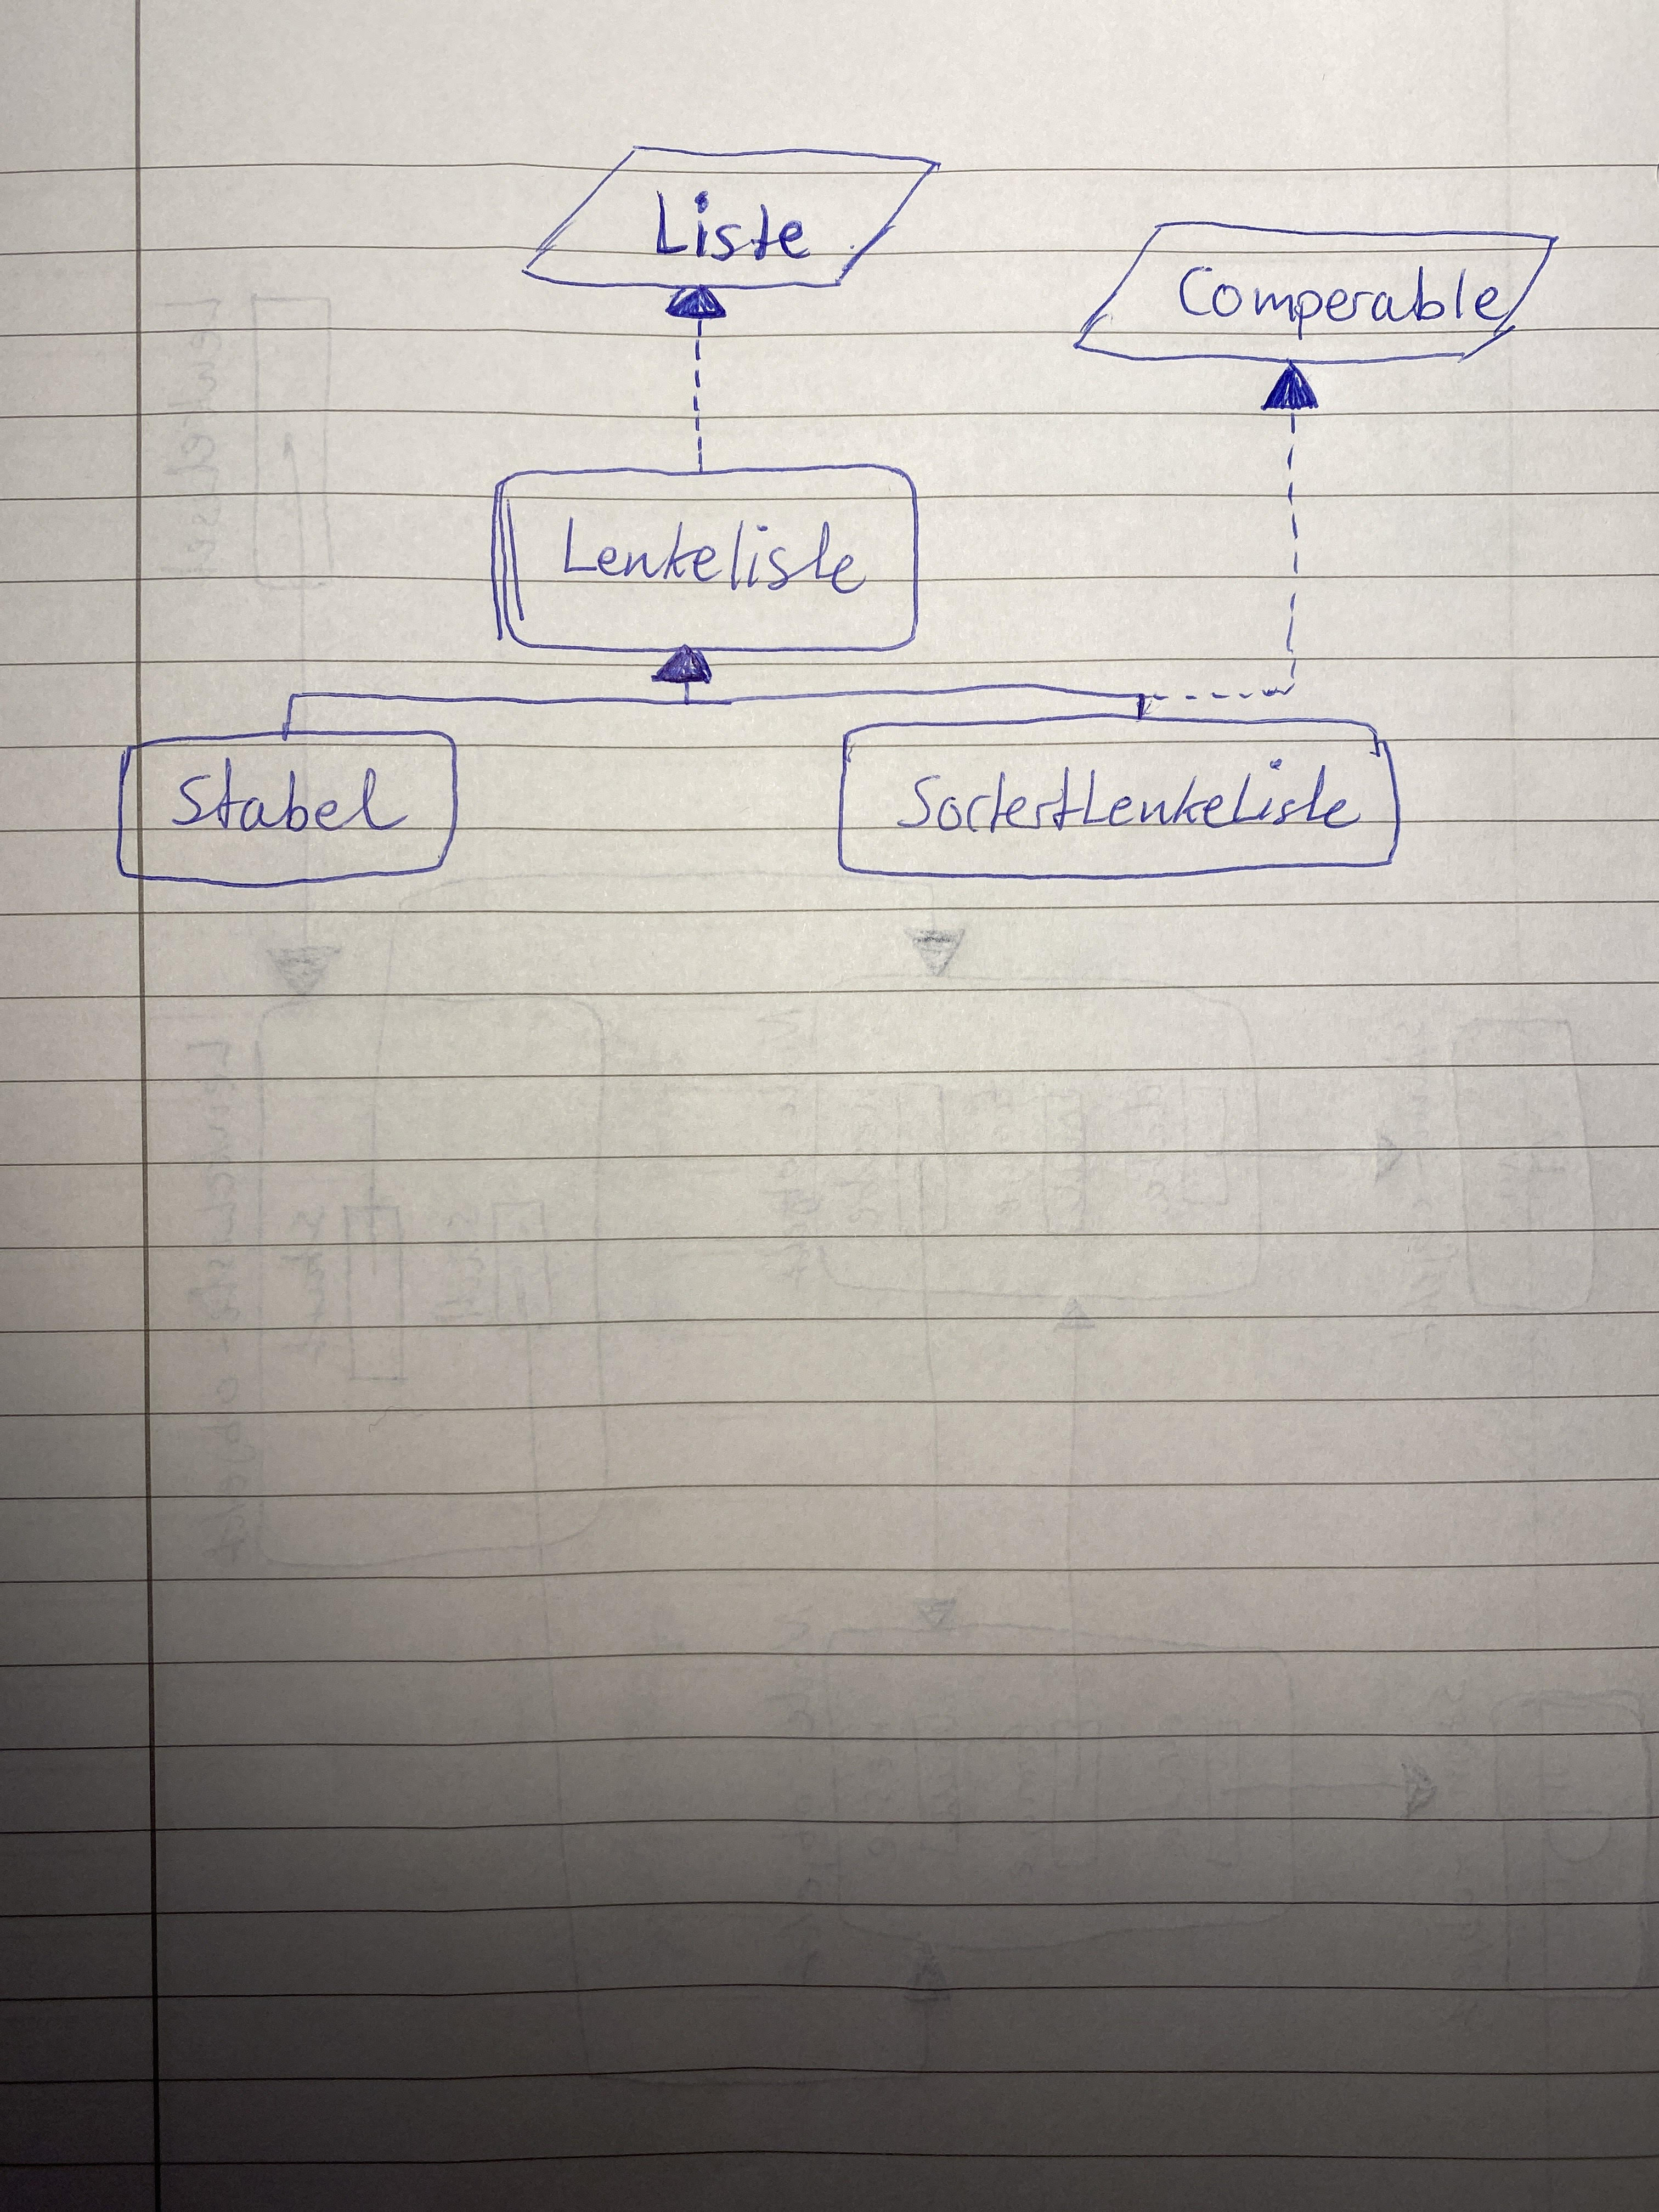 Liste
Comperable
Lenkeliste
Stabel
SortertLenkeListe